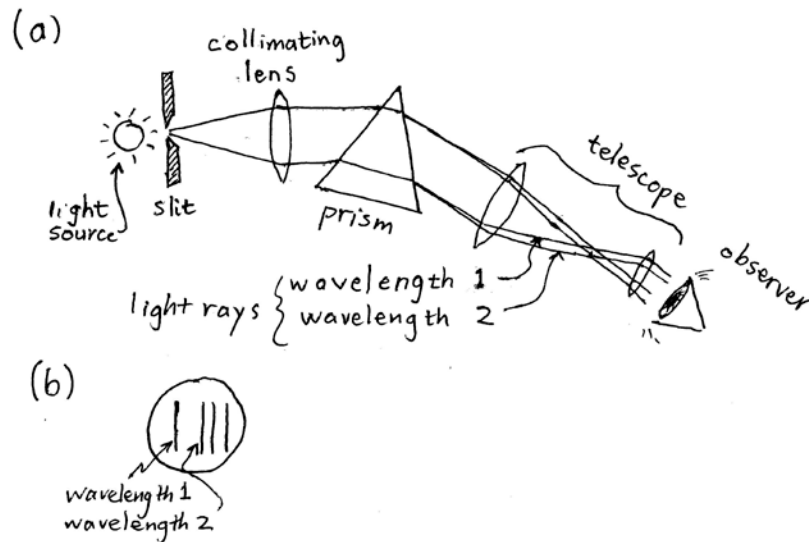 (a)
collimating
lens
light
source
slit
prism
telescope
observer
light rays { wavelength 1
wavelength 2
(b)
wavelength 1
wavelength 2